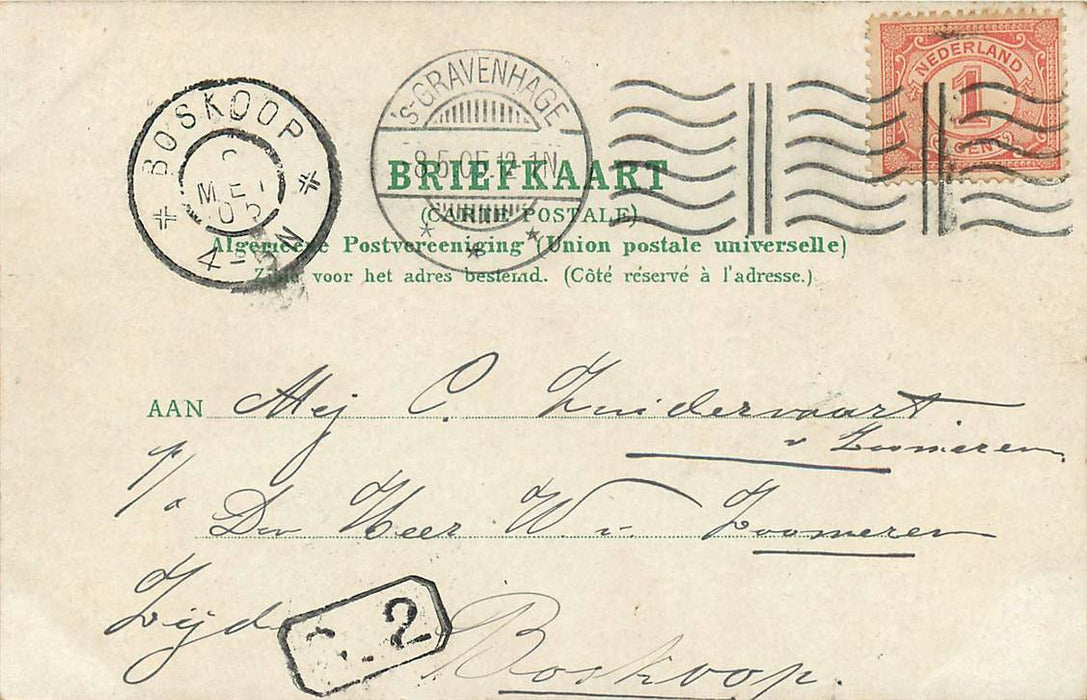 NEDERLAND
1
CENT
's-GRAVENHAGE
8.5.05.12-1N
BOSKOOP
MEI
05
4-5N
BRIEFKAART
(CARTE POSTALE)
Algemeene Postvereeniging (Union postale universelle)
Zijde voor het adres bestemd. (Côté réservé à l'adresse.)
AAN Mej C. Zuidervaart
v Zoomeren
p/a
Den Heer W v. Zoomeren
Zijde
2
Boskoop.